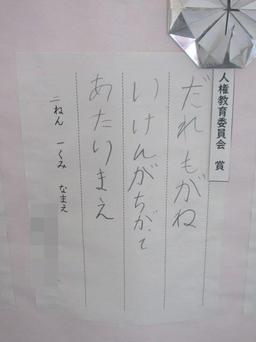 人権教育委員会 賞
だれもがね
いけんがちがって
あたりまえ
二ねん 一くみ なまえ